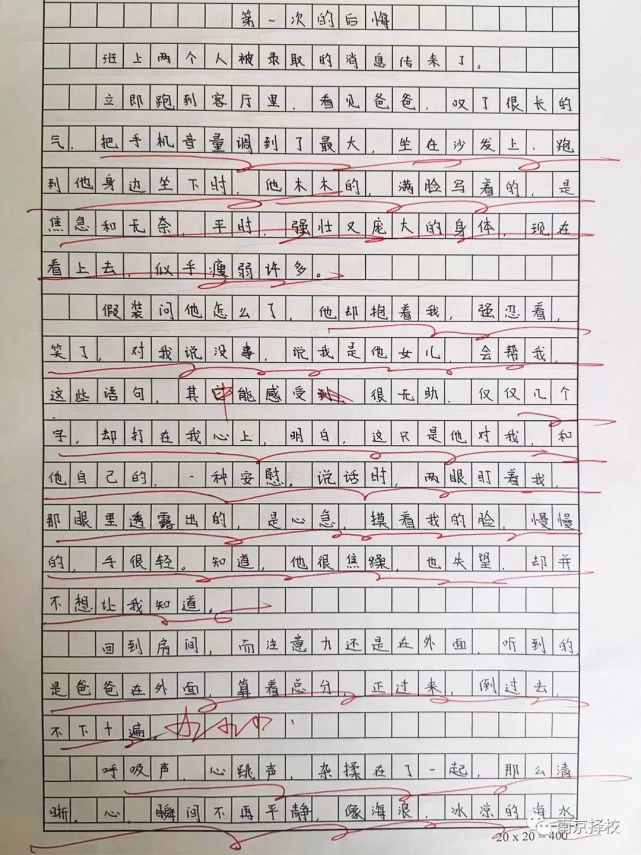 第一次的后悔
班上两个人被录取的消息传来了。
立即跑到客厅里，看见爸爸，叹了很长的
气，把手机音量调到了最大，坐在沙发上，跑
到他身边坐下时，他木木的，满脸写着的，是
焦急和无奈，平时，强壮又庞大的身体，现在
看上去，似乎瘦弱许多。
假装问他怎么了，他却抱着我，强忍着，
笑了，对我说没事，说我是他女儿，会帮我，
这些语句，其中能感受到很无助，仅仅几个
字，却打在我心上，明白，这只是他对我，和
他自己的，一种安慰，说话时，两眼盯着我，
那眼里透露出的，是心急，摸着我的脸，慢慢
的，手很轻。知道，他很焦躁，也失望，却并
不想让我知道。
回到房间，而注意力还是在外面，听到的，
是爸爸在外面，算着总分，正过来，倒过去，
不下十遍，
呼吸声，心跳声，杂揉在了一起，那么清
晰，心，瞬间不再平静，像海浪，冰凉的海水
20 x 20 = 400
南京择校